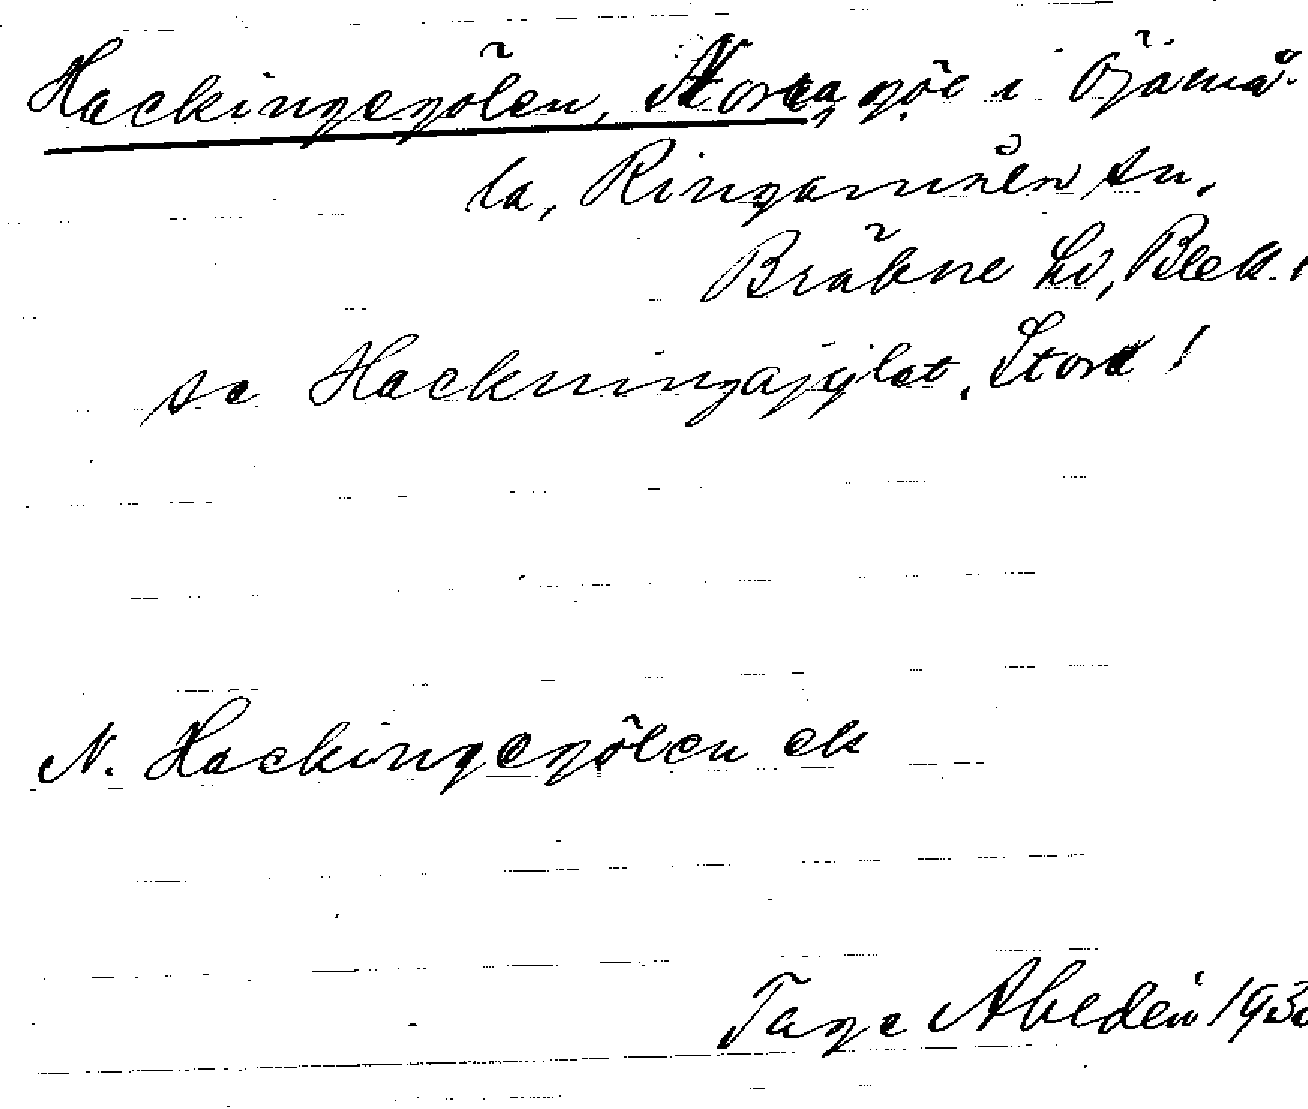 Hackingegölen, Stora, göl i Öjamå-
la, Ringamålen sn,
Bräkne hd, Blek.
se Hackningagylet, Stora!
N. Hackingegölen ek
Tage Ahldén 193